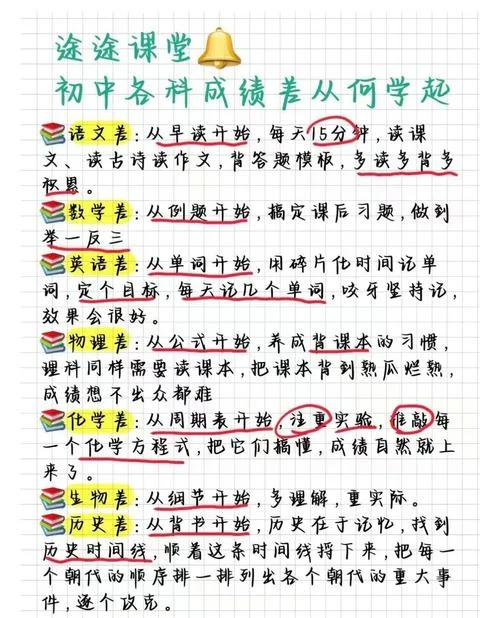 途途课堂
初中各科成绩差从何学起
语文差:从早读开始,每天15分钟,读课
文、读古诗读作文,背答题模板,多读多背多
积累。
数学差:从例题开始,搞定课后习题,做到
举一反三
英语差:从单词开始,用碎片化时间记单
词,定个目标,每天记几个单词,咬牙坚持记,
效果会很好。
物理差:从公式开始,养成背课本的习惯,
理科同样需要读课本,把课本背到熟瓜烂熟,
成绩想不出众都难
化学差:从周期表开始,注重实验,推敲每
一个化学方程式,把它们搞懂,成绩自然就上
来了。
生物差:从细节开始,多理解,重实际。
历史差:从背书开始,历史在于记忆,找到
历史时间线,顺着这条时间线捋下来,把每一
个朝代的顺序排一排列出各个朝代的重大事
件,逐个攻克。